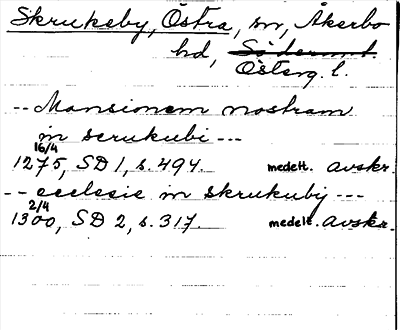 Skrukeby, Östra, sn, Åkerbo
hd, Söderml.
Österg. l.
-- Mansionem nostram
in scrukubi ---
16/4
1275, SD 1, s. 494. medelt. avskr.
-- ecclesie in skrukubij ---
2/4
1300, SD 2, s. 317. medelt. avskr.